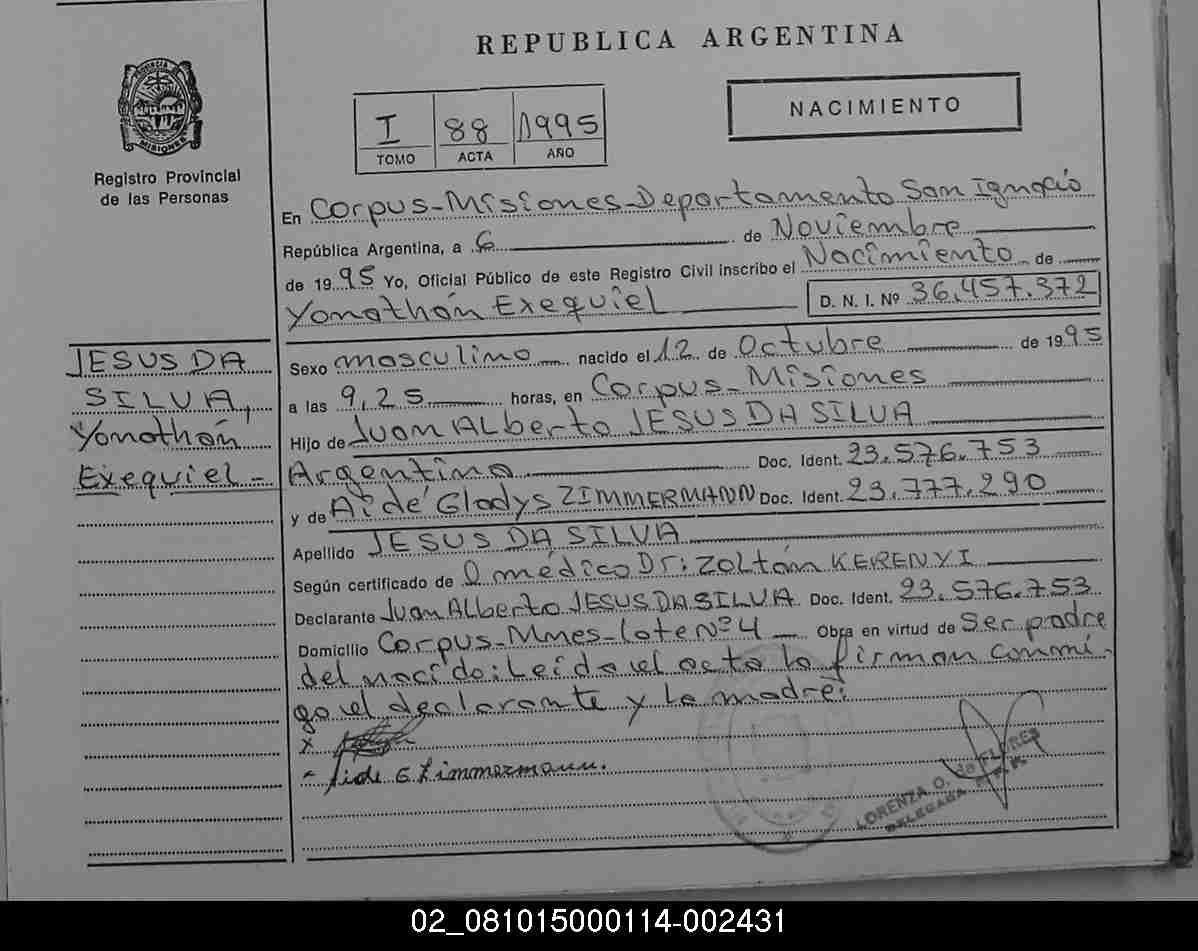 REPUBLICA ARGENTINA
PROVINCIA DE MISIONES
Registro Provincial
de las Personas
I 88 1995
TOMO ACTA AÑO
NACIMIENTO
En Corpus-Misiones-Departamento San Ignacio
República Argentina, a 6 de Noviembre
de 1995 Yo, Oficial Público de este Registro Civil inscribo el Nacimiento de
Yonathán Exequiel D. N. I. Nº 36.457.372
JESUS DA
SILVA,
Yonathán
Exequiel-
Sexo masculino nacido el 12 de Octubre de 1995
a las 9,25 horas, en Corpus-Misiones
Hijo de Juan ALberto JESUS DA SILVA
Argentino Doc. Ident. 23.576.753
y de Aidé Gladys ZIMMERMANN Doc. Ident. 23.777.290
Apellido JESUS DA SILVA
Según certificado de médico Dr: Zoltán KERENYI
Declarante Juan ALberto JESUS DA SILVA Doc. Ident. 23.576.753
Domicilio Corpus-Mnes-lote Nº 4 Obra en virtud de Ser padre
del nacido: Leída el acta la firman conmi-
go el declarante y la madre:
x
- Aide G Zimmermann.
LORENZA O. de FLORES
DELEGADA
02_081015000114-002431